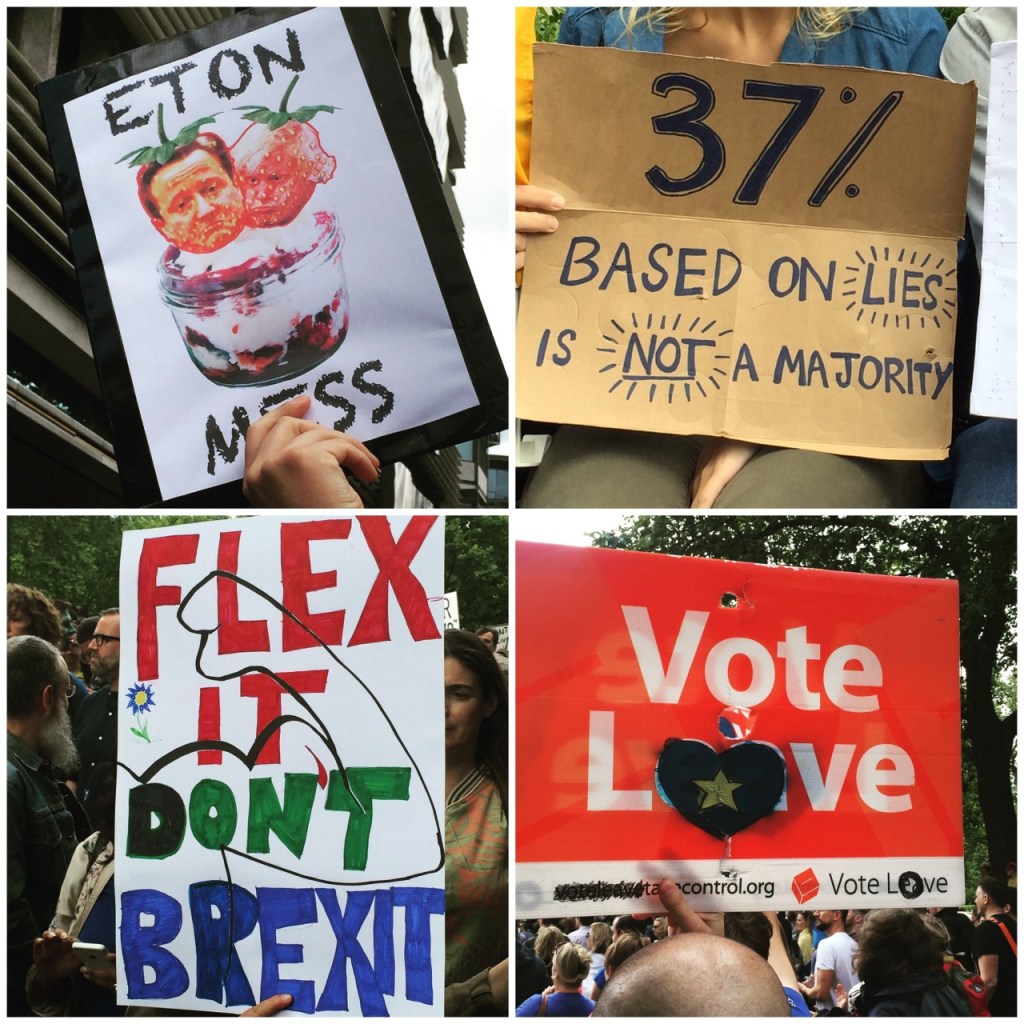 ETON
MESS
37%
BASED ON LIES
IS NOT A MAJORITY
FLEX
IT
DON'T
BREXIT
Vote
Leave
voteleavetakecontrol.org Vote Love